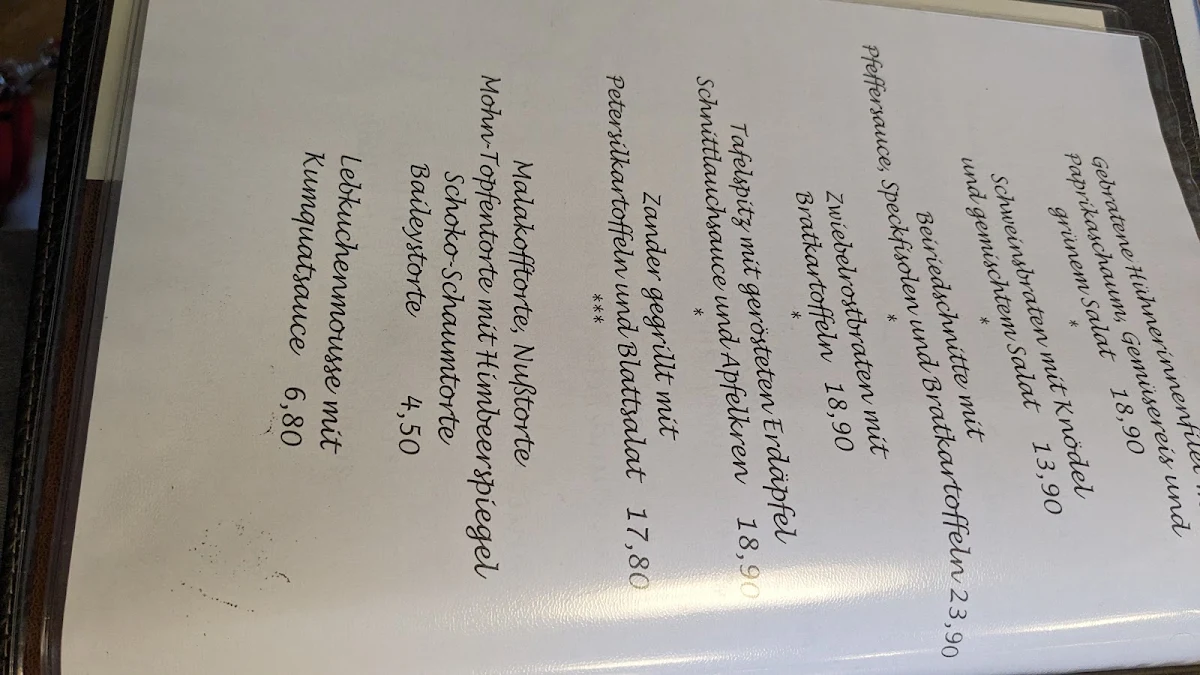 Gebratene Hühnerinnenfilet
Paprikaschaum, Gemüsereis und
grünem Salat 18,90
*
Schweinsbraten mit Knödel
und gemischtem Salat 13,90
*
Beiriedschnitte mit
Pfeffersauce, Speckfisolen und Bratkartoffeln 23,90
*
Zwiebelrostbraten mit
Bratkartoffeln 18,90
*
Tafelspitz mit gerösteten Erdäpfel
Schnittlauchsauce und Apfelkren 18,90
*
Zander gegrillt mit
Petersilkartoffeln und Blattsalat 17,80
***
Malakofftorte, Nußtorte
Mohn-Topfentorte mit Himbeerspiegel
Schoko-Schaumtorte
Baileystorte 4,50
Lebkuchenmousse mit
Kumquatsauce 6,80